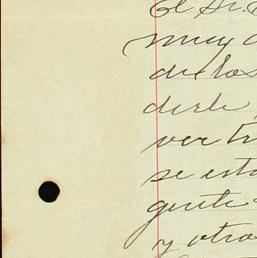 El Sr.
muy
de los
dirle
ver tr
se esta
gente
y otra